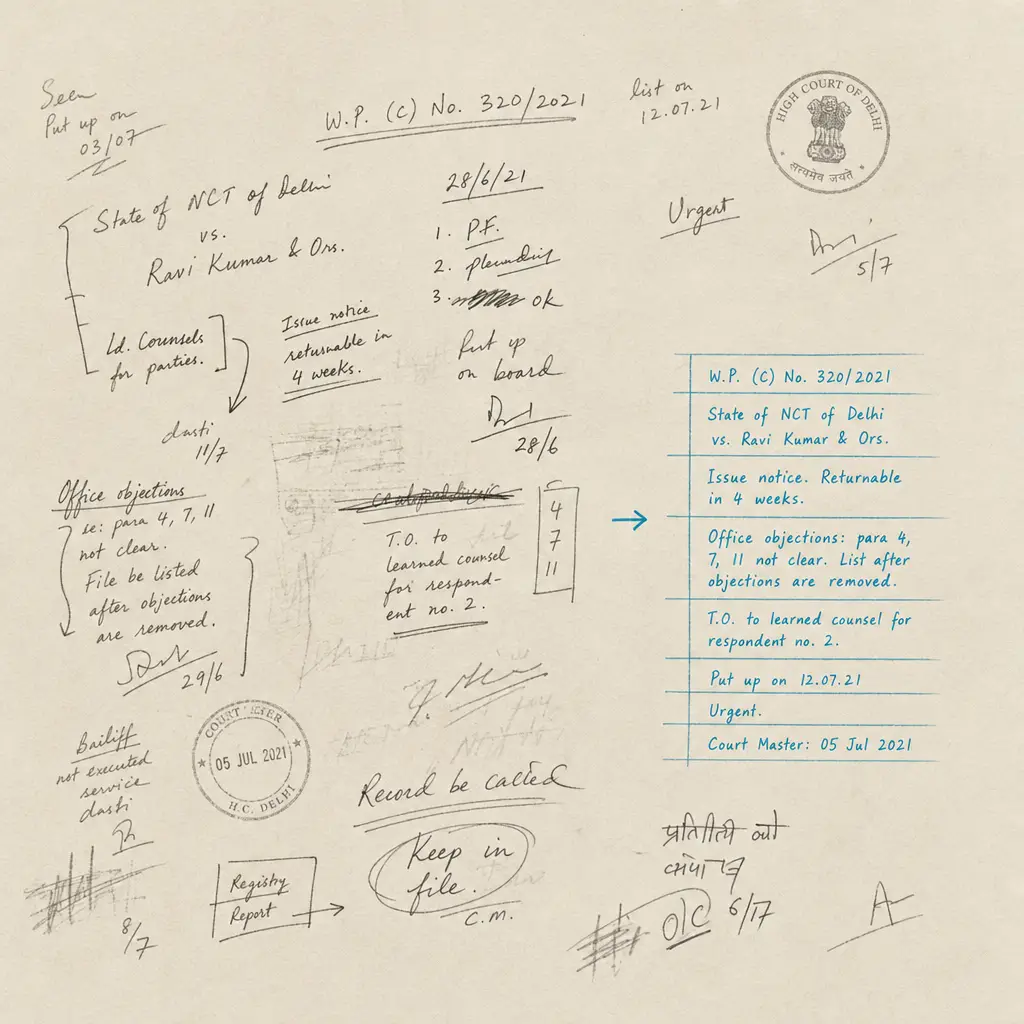 Seen
Put up on
03/07
W.P. (C) No. 320/2021
list on
12.07.21
HIGH COURT OF DELHI
सत्यमेव जयते
State of NCT of Delhi
vs.
Ravi Kumar & Ors.
28/6/21
1. P.F.
2.
3. ok
Urgent
5/7
Ld. Counsels
for parties.
Issue notice
returnable in
4 weeks.
Put up
on board
28/6
dasti
11/7
Office objections
se: para 4, 7, 11
not clear.
File be listed
after objections
are removed.
29/6
T.O. to
learned counsel
for respond-
ent no. 2.
4
7
11
W.P. (C) No. 320/2021
State of NCT of Delhi
vs. Ravi Kumar & Ors.
Issue notice. Returnable
in 4 weeks.
Office objections: para 4,
7, 11 not clear. List after
objections are removed.
T.O. to learned counsel for
respondent no. 2.
Put up on 12.07.21
Urgent.
Court Master: 05 Jul 2021
Bailiff
not executed
service
dasti
8/7
COURT
05 JUL 2021
H.C. DELHI
Record be called
Keep in
file.
C.M.
Registry
Report
6/17